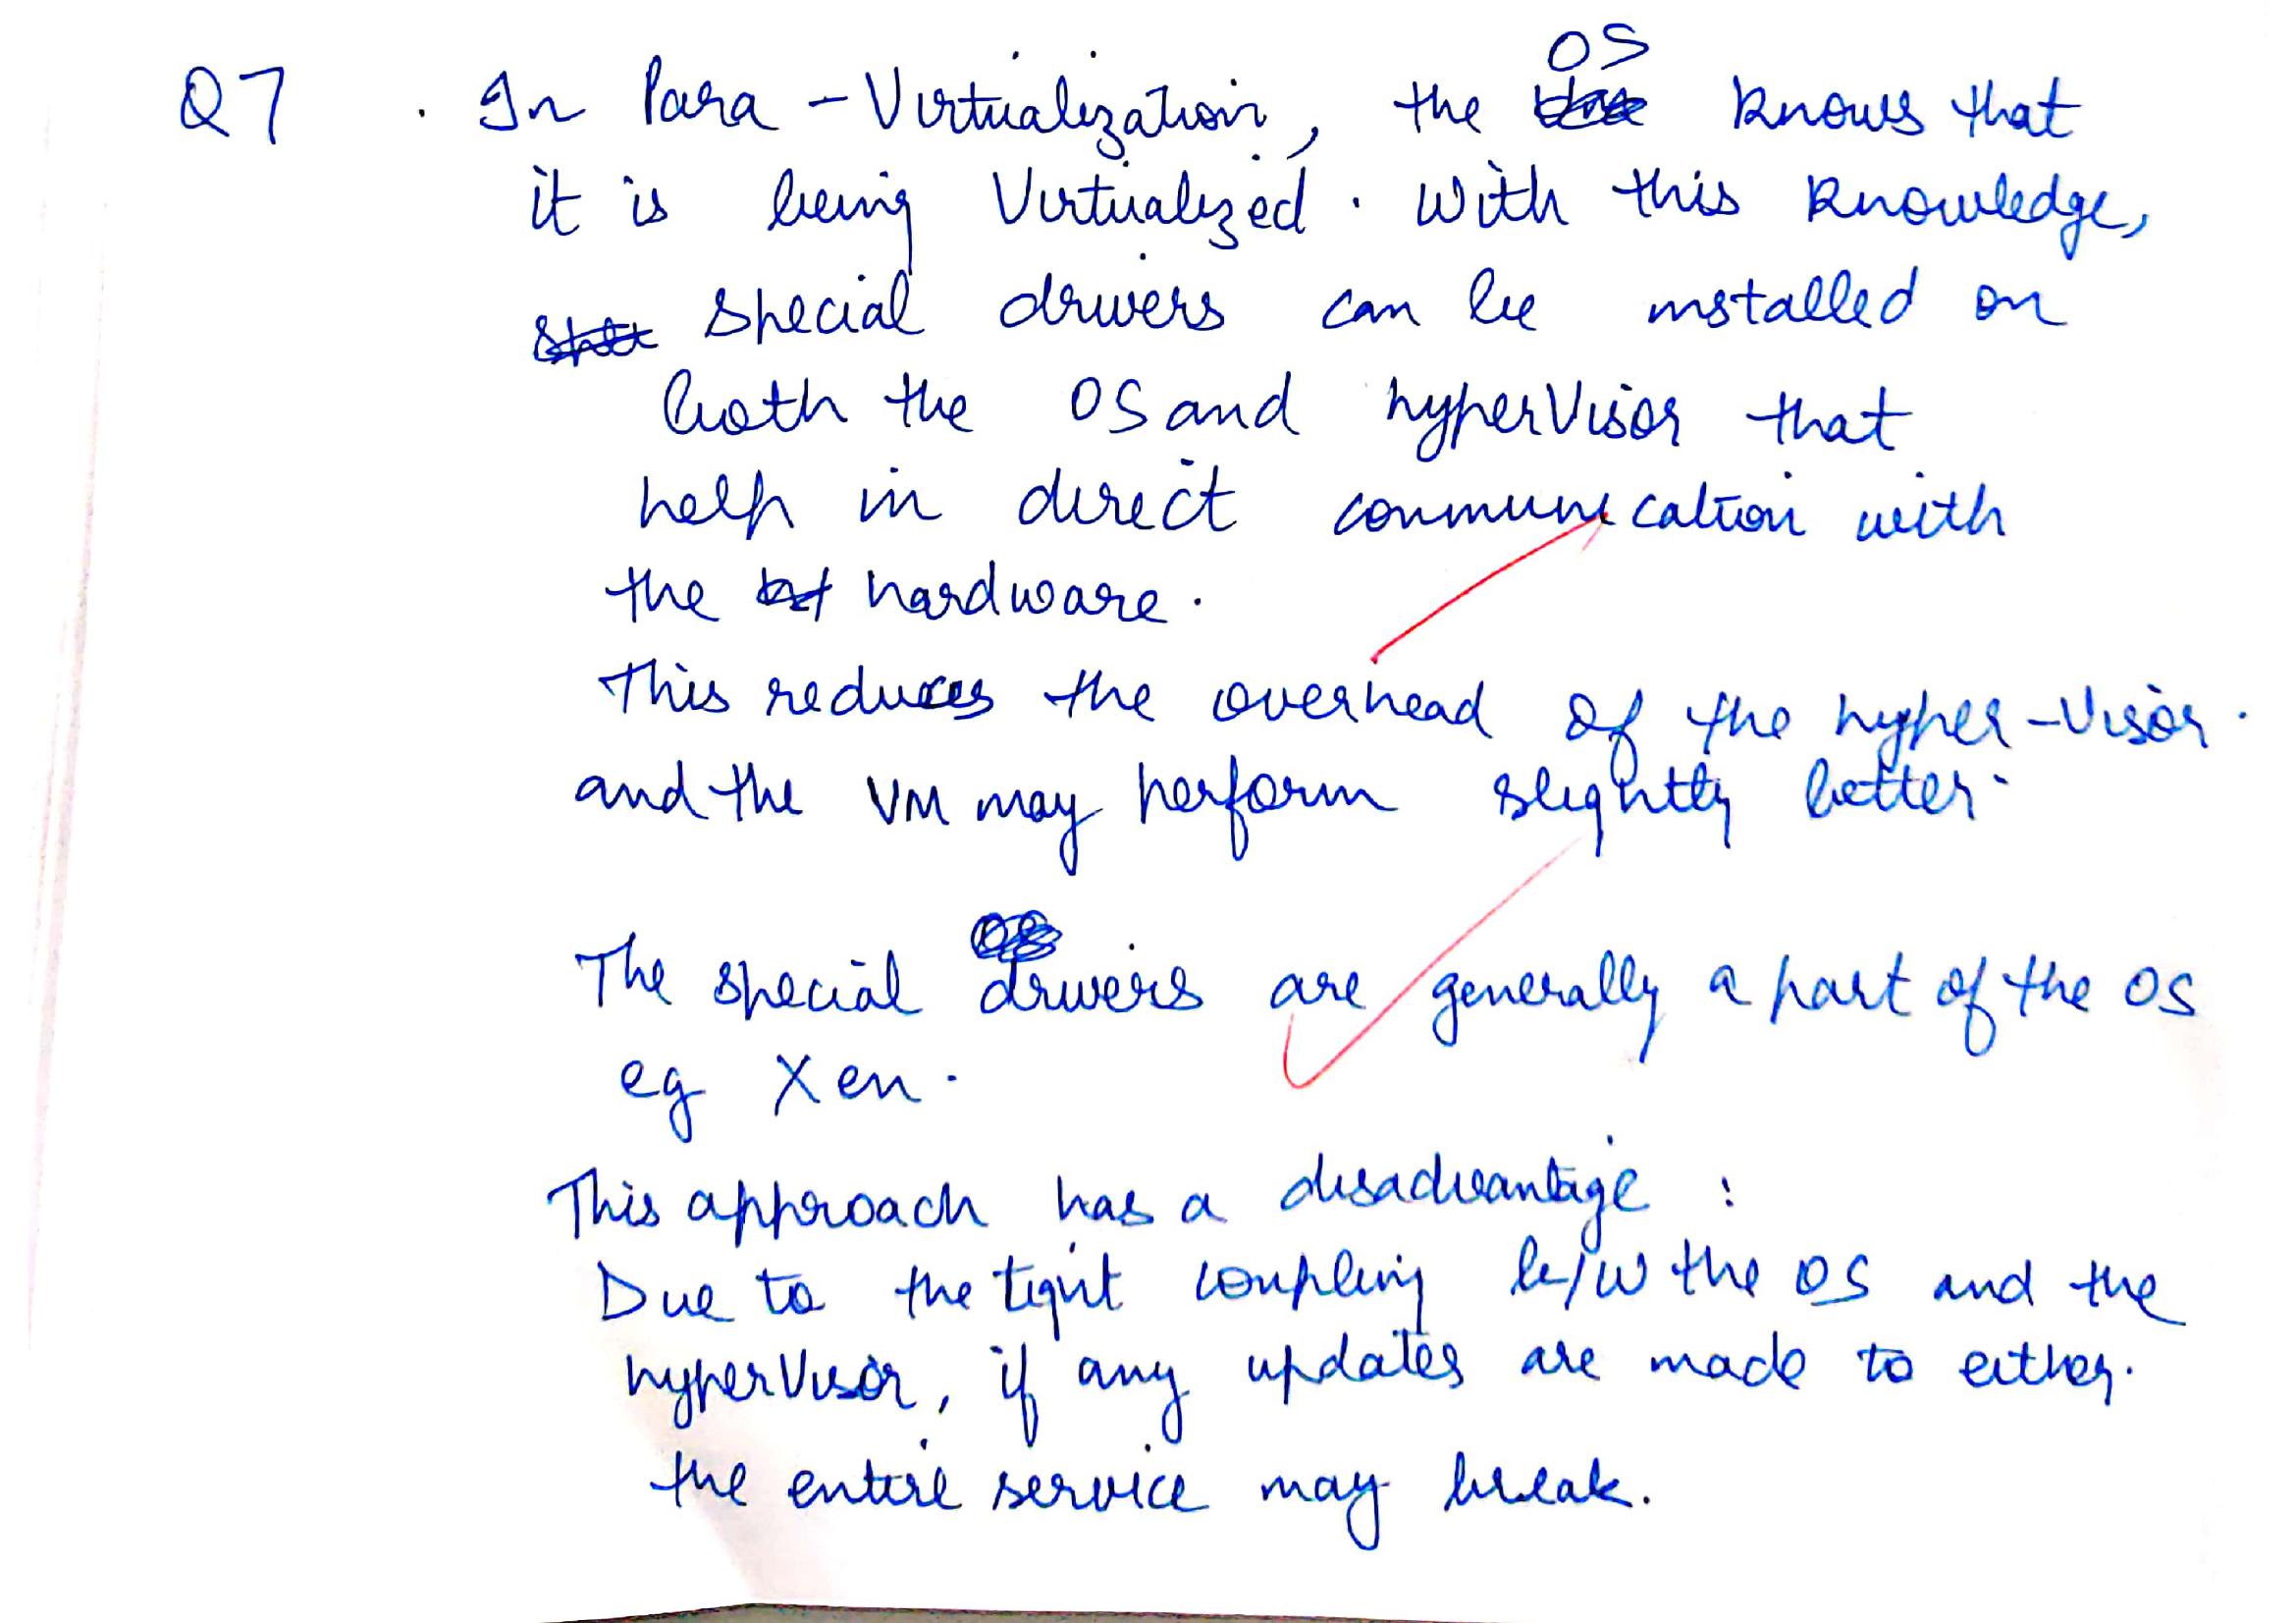 Q7 . In Para-Virtualization, the OS knows that
it is being Virtualized. With this knowledge,
special drivers can be installed on
both the OS and hyperVisor that
help in direct communication with
the hardware.
This reduces the overhead of the hyper-Visor.
and the VM may perform slightly better.
The special drivers are generally a part of the OS
eg Xen.
This approach has a disadvantage :
Due to the tight coupling b/w the OS and the
hyperVisor, if any updates are made to either.
the entire service may break.